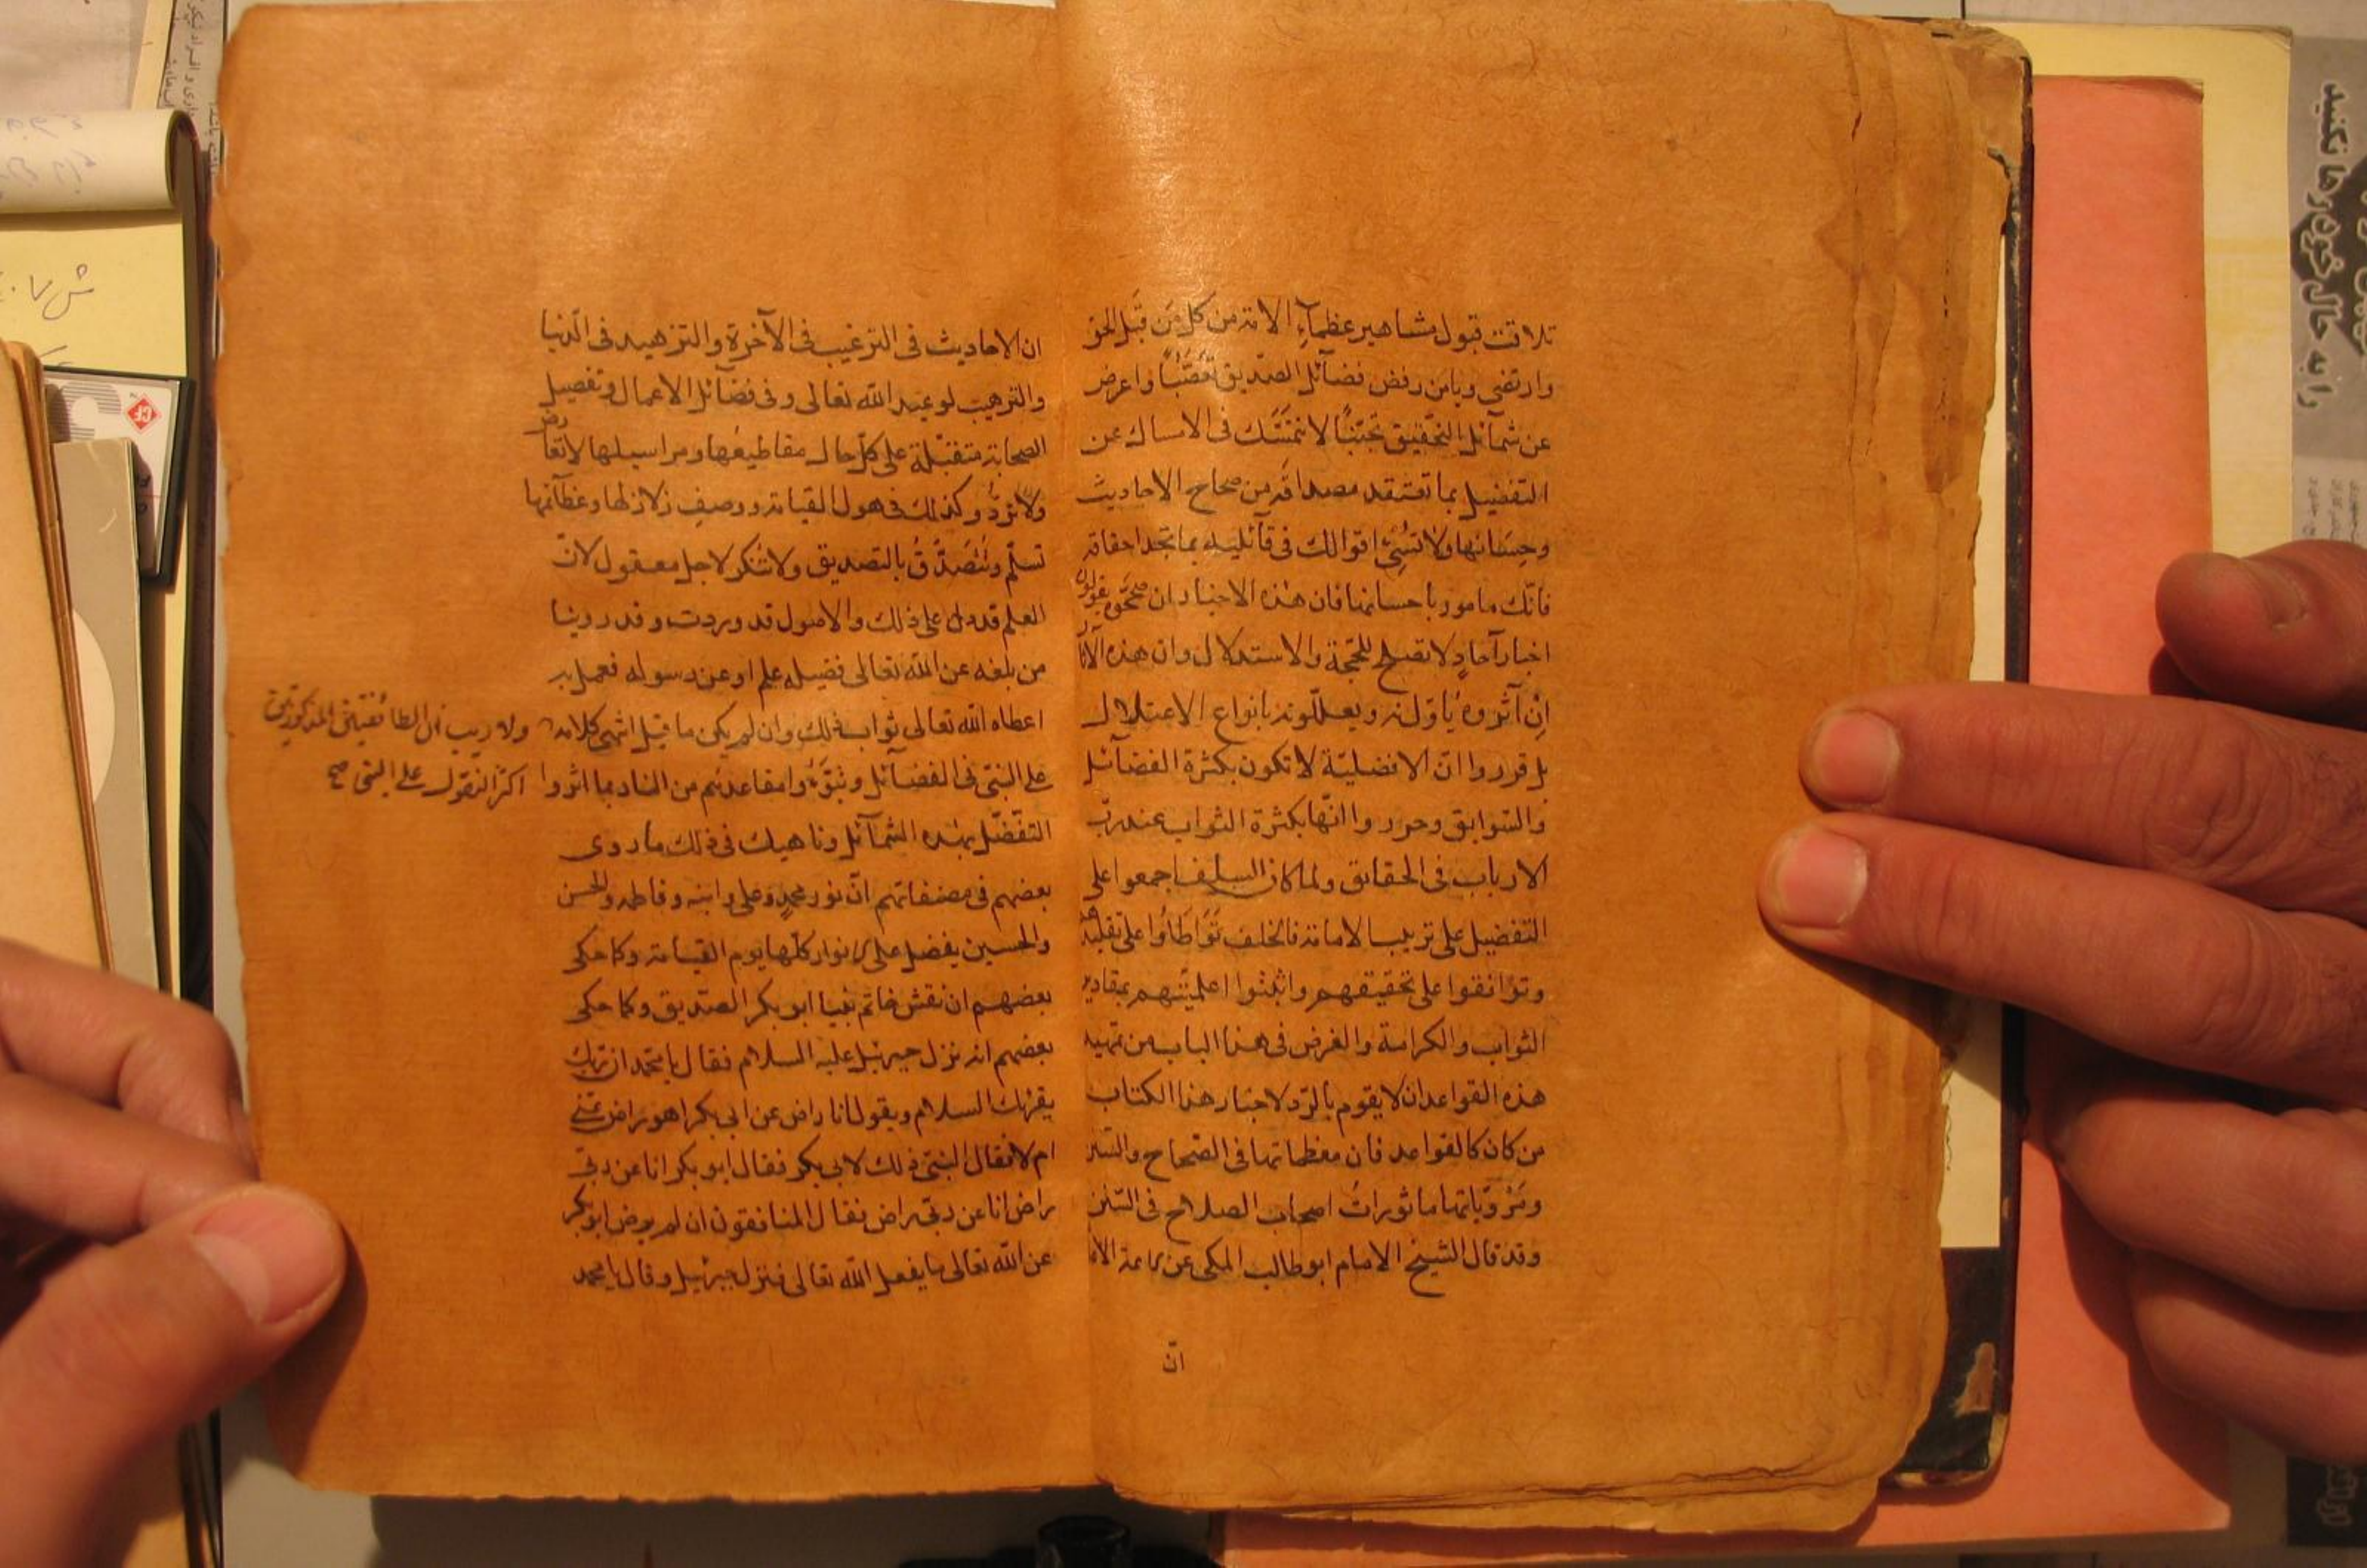 تلاقت قبول مشاهير عظمآء الامة من كل من قبل الحق
وارتضى ويا من رفض فضآئل الصديق تعصبا واعرض
عن شمآئل التحقيق تجنبا لا تمسك فى الامساك عن
التفضيل بما تفتقد مصداقه من صحاح الاحاديث
وحسانها ولا تسئ اقوالك فى قآئليه بما تجد احقاقه
فانك مامور باحسانها فان هذه الاخبار ان صححوه يقولون
اخبار آحاد لا تصلح للحجة والاستدلال وان هذه الآثار
ان آثروه ياولونه ويعللونه بانواع الاعتلال
بل قرروا ان الافضلية لا تكون بكثرة الفضآئل
والسوابق وحرروا انها بكثرة الثواب عند رب
الارباب فى الحقايق ولما كان السلف اجمعوا على
التفضيل على ترتيب الامامة فالخلف تواطاوا على تقليدهم
وتوافقوا على تحقيقهم واثبتوا اعلميتهم بمقادير
الثواب والكرامة والغرض فى هذا الباب من تمهيد
هذه القواعد ان لا يقوم بالرد لاخبار هذا الكتاب
من كان كالقواعد فان معظماتها فى الصحاح والسنن
ومروياتها ماثورات اصحاب الصلاح فى السنن
وقد قال الشيخ الامام ابو طالب المكى عن
ان
ان الاحاديث فى الترغيب فى الآخرة والتزهيد فى الدنيا
والترهيب لوعيد الله تعالى وفى فضآئل الاعمال وتفصيل
الصحابة رض متقبلة على كل حال مقاطيعها ومراسيلها لا تعارض
ولا ترد وكذلك فى هول القيامة ووصف زلازلها وعظآئمها
تسلم وتتصدق بالتصديق ولا تنكر لاجل معقول لان
العلم قد دل على ذلك والاصول قد وردت وقد روينا
من بلغه عن الله تعالى فضيله علم او عن رسوله فعمل به
اعطاه الله تعالى ثواب ذلك وان لم يكن ما قيل انتهى كلامه
ولا ريب ان الطائفتين المذكورتين
اكثر التقول على النبى صح
على النبى فى الفضآئل وتبوءوا مقاعدهم من النار بما اثروا
التفضل بهذه الشمآئل وناهيك فى ذلك ما روى
بعضهم فى مصنفاتهم ان نور محمد وعلى وابنه وفاطمه والحسن
والحسين يفضل على الانوار كلها يوم القيامة وكما حكى
بعضهم ان نقش خاتم نبينا ابو بكر الصديق وكما حكى
بعضهم انه نزل جبرئيل عليه السلام فقال يا محمد ان ربك
يقرئك السلام ويقول انا راض عن ابى بكر اهو راض عنى
ام لا فقال النبى ذلك لابى بكر فقال ابو بكر انا عن ربى
راض انا عن ربى راض فقال المنافقون ان لم يرض ابو بكر
عن الله تعالى ما يفعل الله تعالى فنزل جبرئيل وقال يا محمد